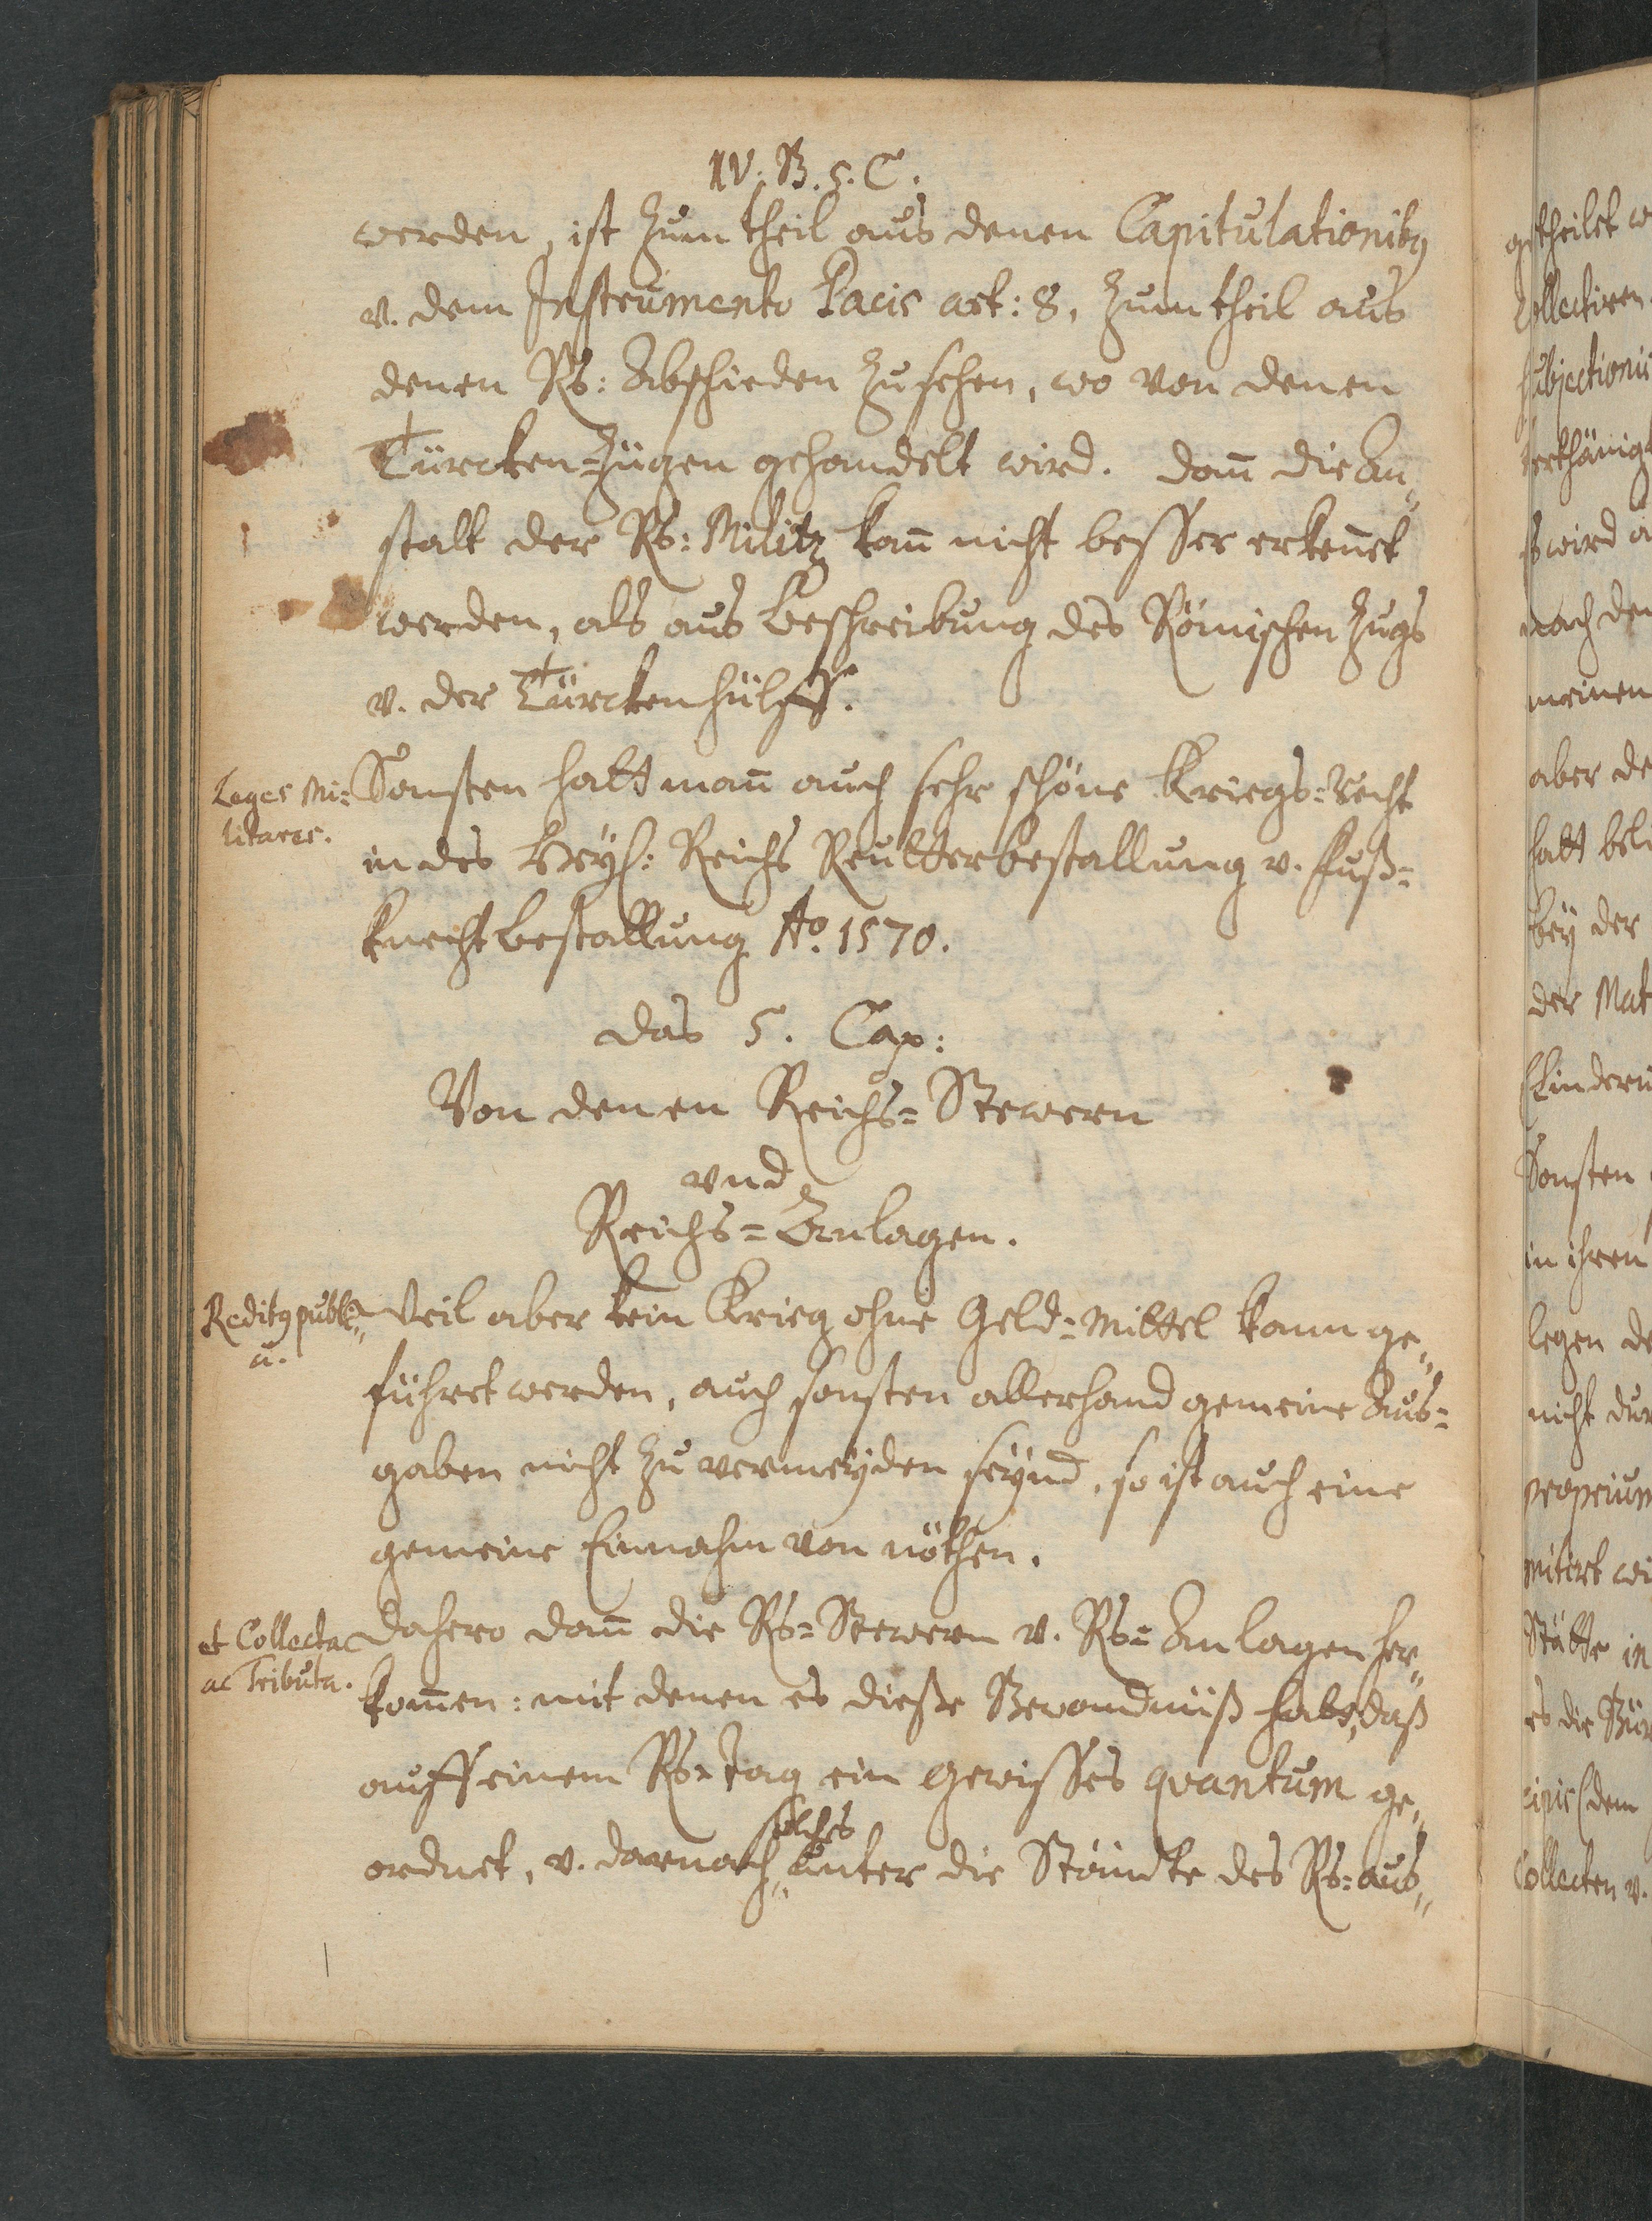 IV. B. 5. C.
werden, ist zum theil aus denen Capitulationibꝯ
v. dem Instrumento Pacis art: 8, zum theil aus
denen Rs: Abschieden zu sehen, wo von denen
Türcken-Zügen gehandelt wird. dann̄ die An„
stalt der Rs: Militz kan̄ nicht besser erken̄et
werden, als aus beschreibung des Römischen Zugs
v. der Türckenhülff.
Leges Mi=
litares.
Sonsten hatt man̄ auch sehr schöne Kriegs=Recht
in des Heyl: Reichs Reutterbestallung v. Fuß=
knecht bestallung Ao. 1570.
Das 5. Cap:
Von denen Reichs=Stewern
vnd
Reichs=Anlagen.
Reditꝯ publi„
ci.
Weil aber kein Krieg ohne Geld=Mittel kann ge„
führet werden, auch sonsten allerhand gemeine Aus=
gaben nicht zu vermeyden seynd, so ist auch eine
gemeine Einnahm von nöthen.
et Collectae
ac Tributa.
Dahero dan̄ die Rs=Stewern v. Rs=Anlagen her„
kom̄en: mit denen es diesse Bewandnüß hatt, daß
auff einem Rs=Tag ein gewisses quantum ge„
solches
ordnet, v. darnach„ unter die Ständte des Rs: aus„
getheilet
Collectiren
subjectionis
terthänig
wird
nach den
meinen
aber de
hatt
bey der
der Mat
Sonsten
in ihren
legen de
nicht dur
proprium
mitirt wi
Stätte in
es die Bür
cipis (dem
Collecten v.